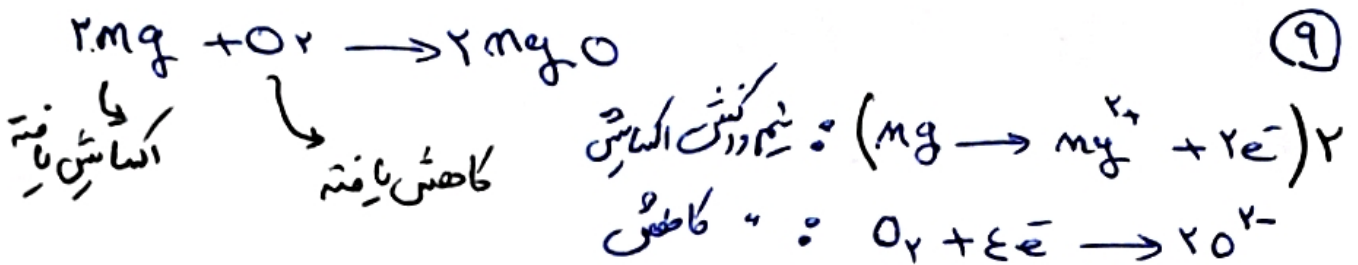 ۹
۲Mg + O۲ → ۲MgO
اکسایش یافته
کاهش یافته
نیم واکنش اکسایش : (Mg → Mg۲+ + ۲e-)۲
" کاهش : O۲ + ٤e- → ۲O۲-